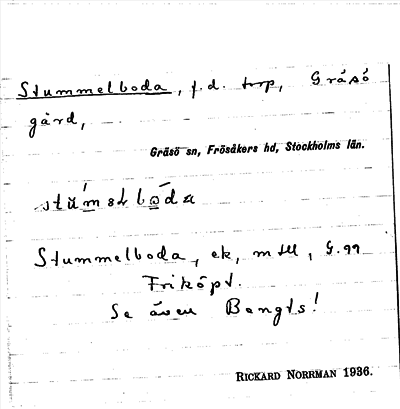 Stummelboda, f.d. torp, Gräsö
gård,
Gräsö sn, Frösåkers hd, Stockholms län.
stumslboda
Stummelboda, ek, mtll, G.99
Friköpt.
Se även Bengts!
RICKARD NORRMAN 1936.